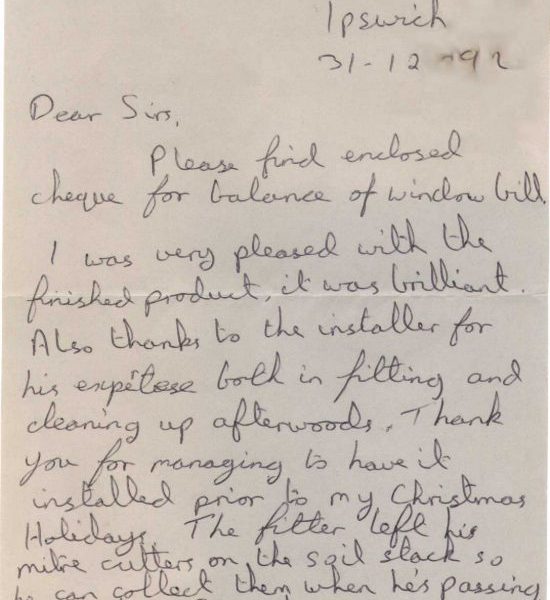 Ipswich
31-12-92
Dear Sirs,
Please find enclosed
cheque for balance of window bill.
I was very pleased with the
finished product, it was brilliant.
Also thanks to the installer for
his expétese both in fitting and
cleaning up afterwoods. Thank
you for managing to have it
installed prior to my Christmas
Holidays. The fitter left his
mitre cutters on the soil stack so
he can collect them when he's passing